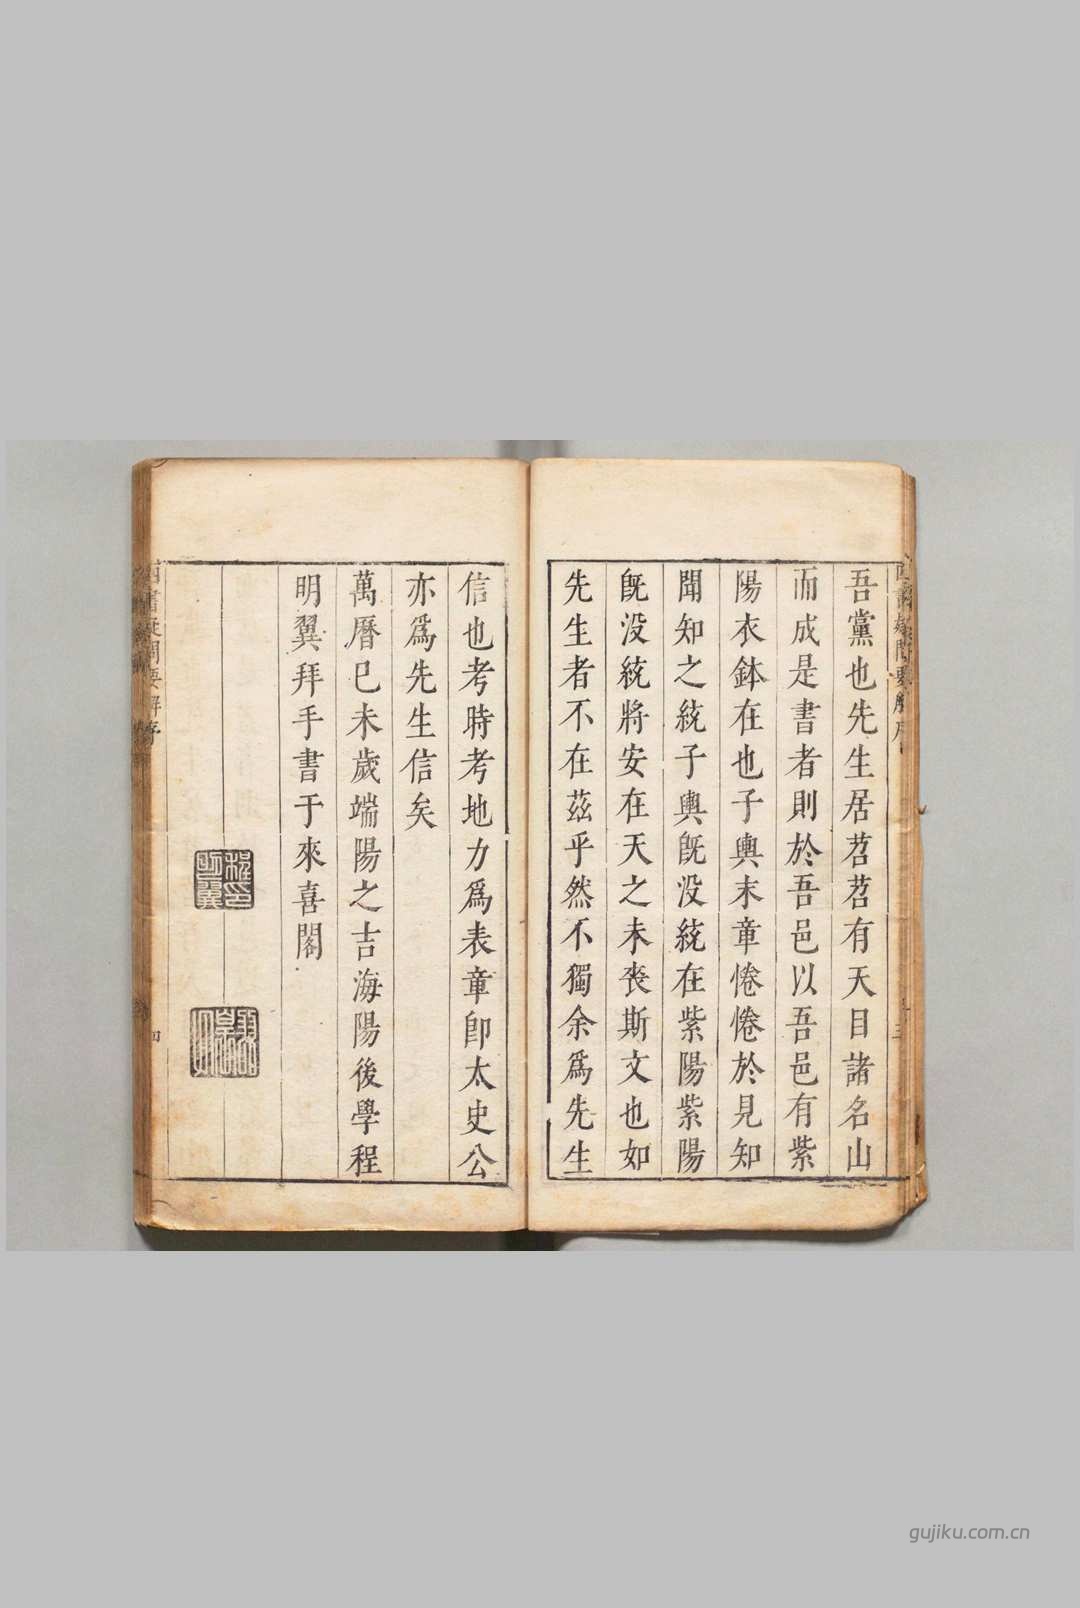 吾黨也先生居苕苕有天目諸名山
而成是書者則於吾邑以吾邑有紫
陽衣鉢在也子輿末章惓惓於見知
聞知之統子輿既没統在紫陽紫陽
既没統將安在天之未喪斯文也如
先生者不在茲乎然不獨余爲先生
信也考時考地力爲表章卽太史公
亦爲先生信矣
萬曆己未歲端陽之吉海陽後學程
明翼拜手書于來喜閣
四書疑問要解序
四
程明翼印
gujiku.com.cn